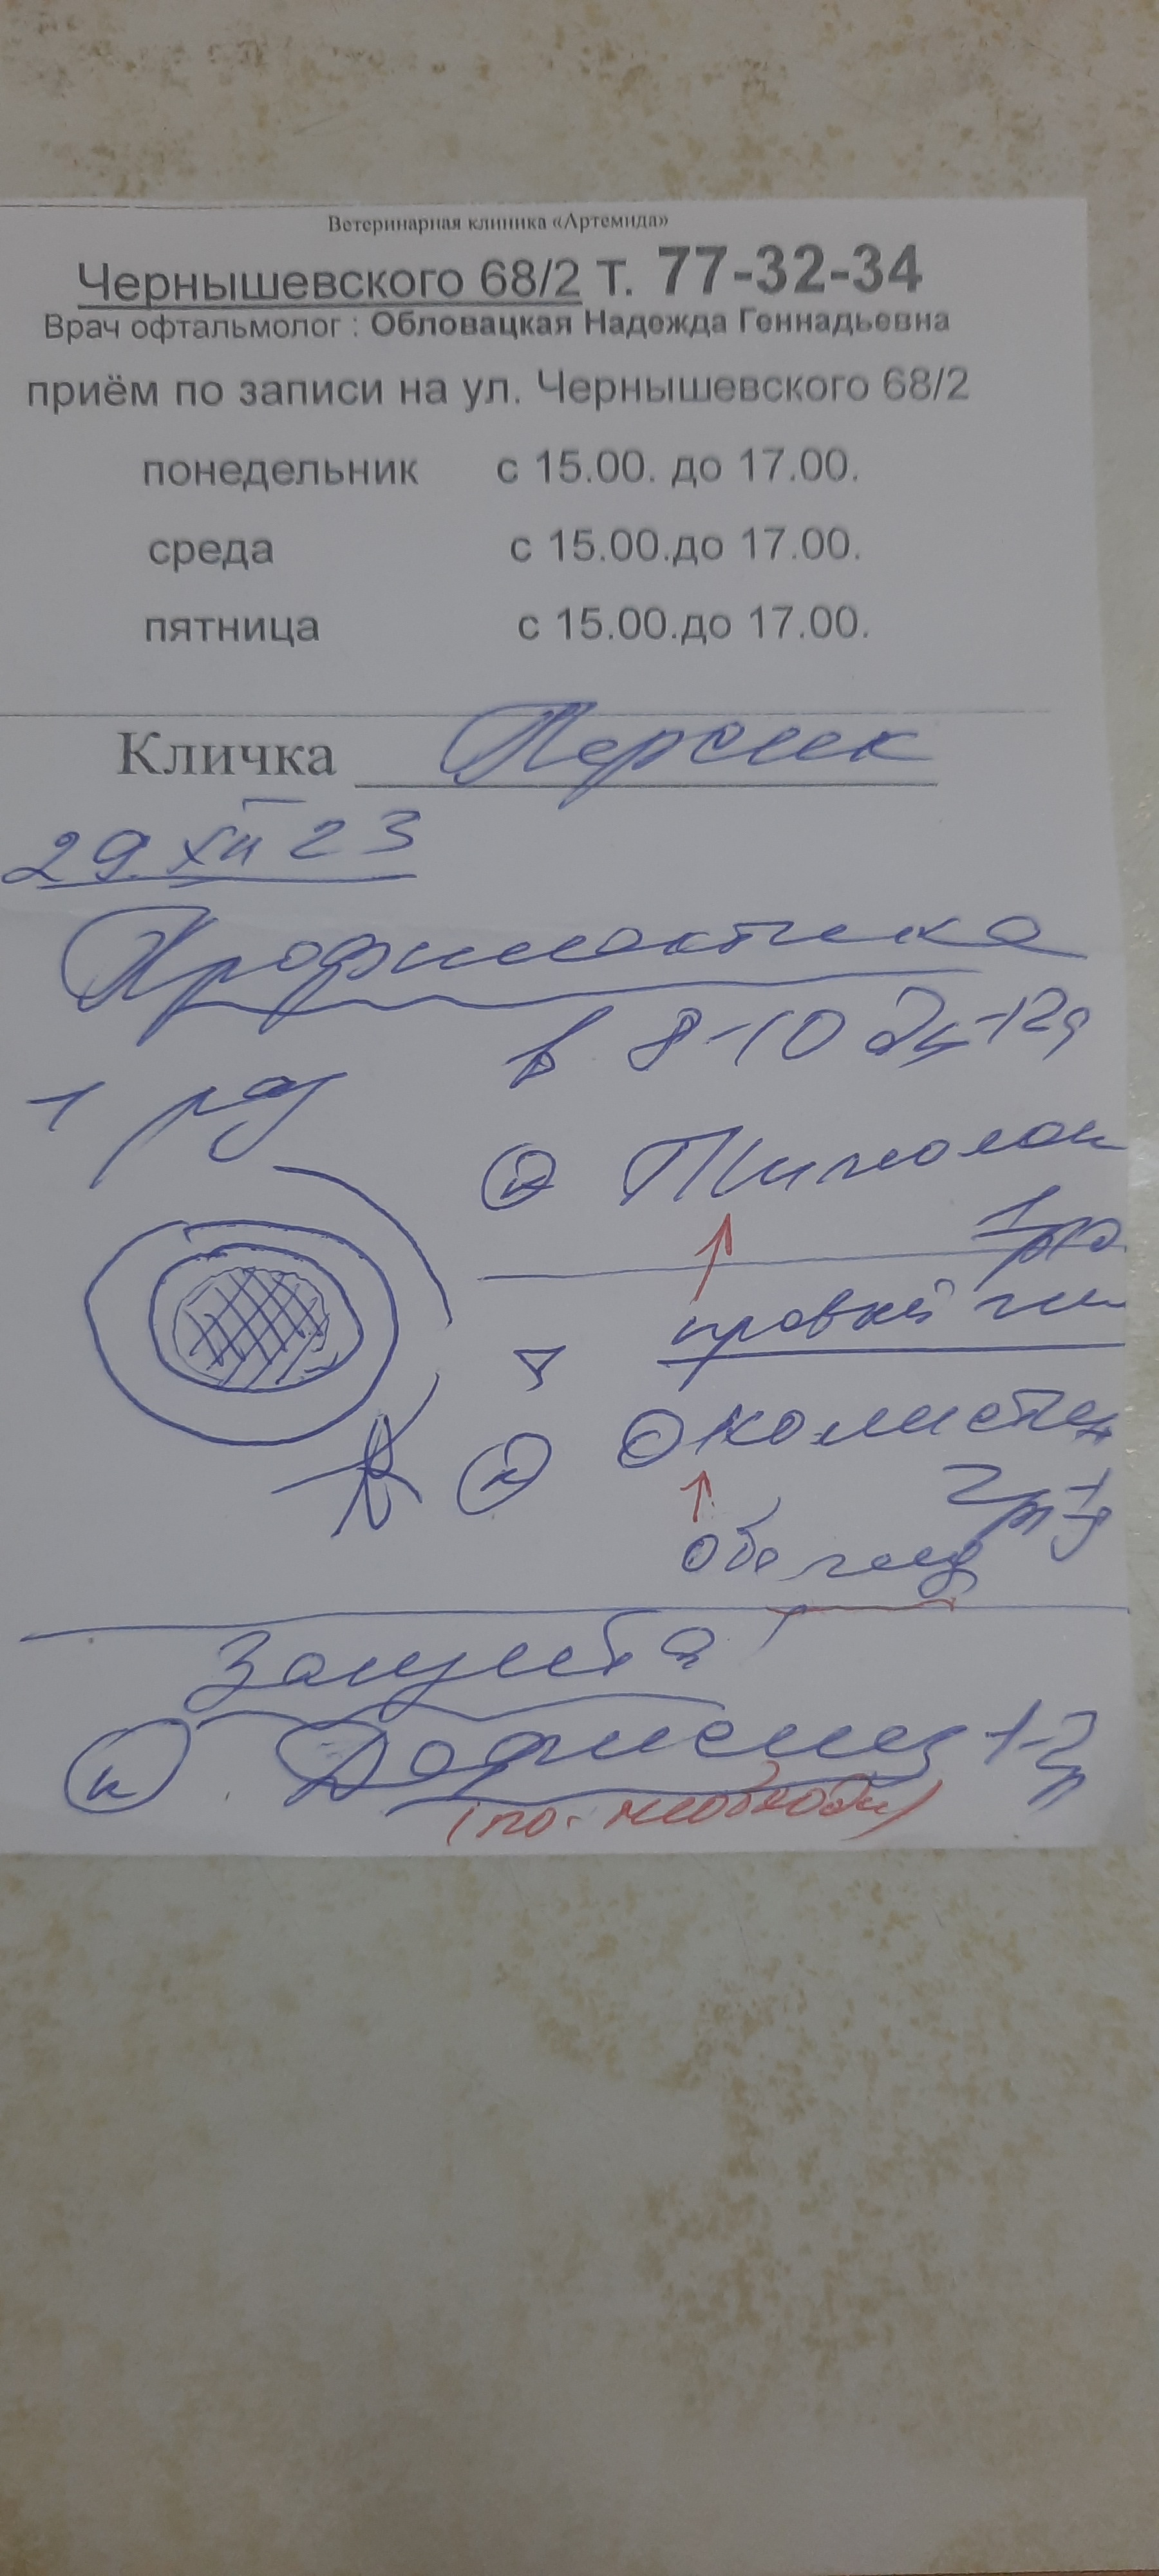 Ветеринарная клиника «Артемида»
Чернышевского 68/2 т. 77-32-34
Врач офтальмолог : Обловацкая Надежда Геннадьевна
приём по записи на ул. Чернышевского 68/2
понедельник с 15.00. до 17.00.
среда с 15.00.до 17.00.
пятница с 15.00.до 17.00.
Кличка Персик
29.XII 23
Профилактика
1 раз в 8-10
к Тимолол
правый
к Окомистин
2р
оба
Защита
к
(по необход)